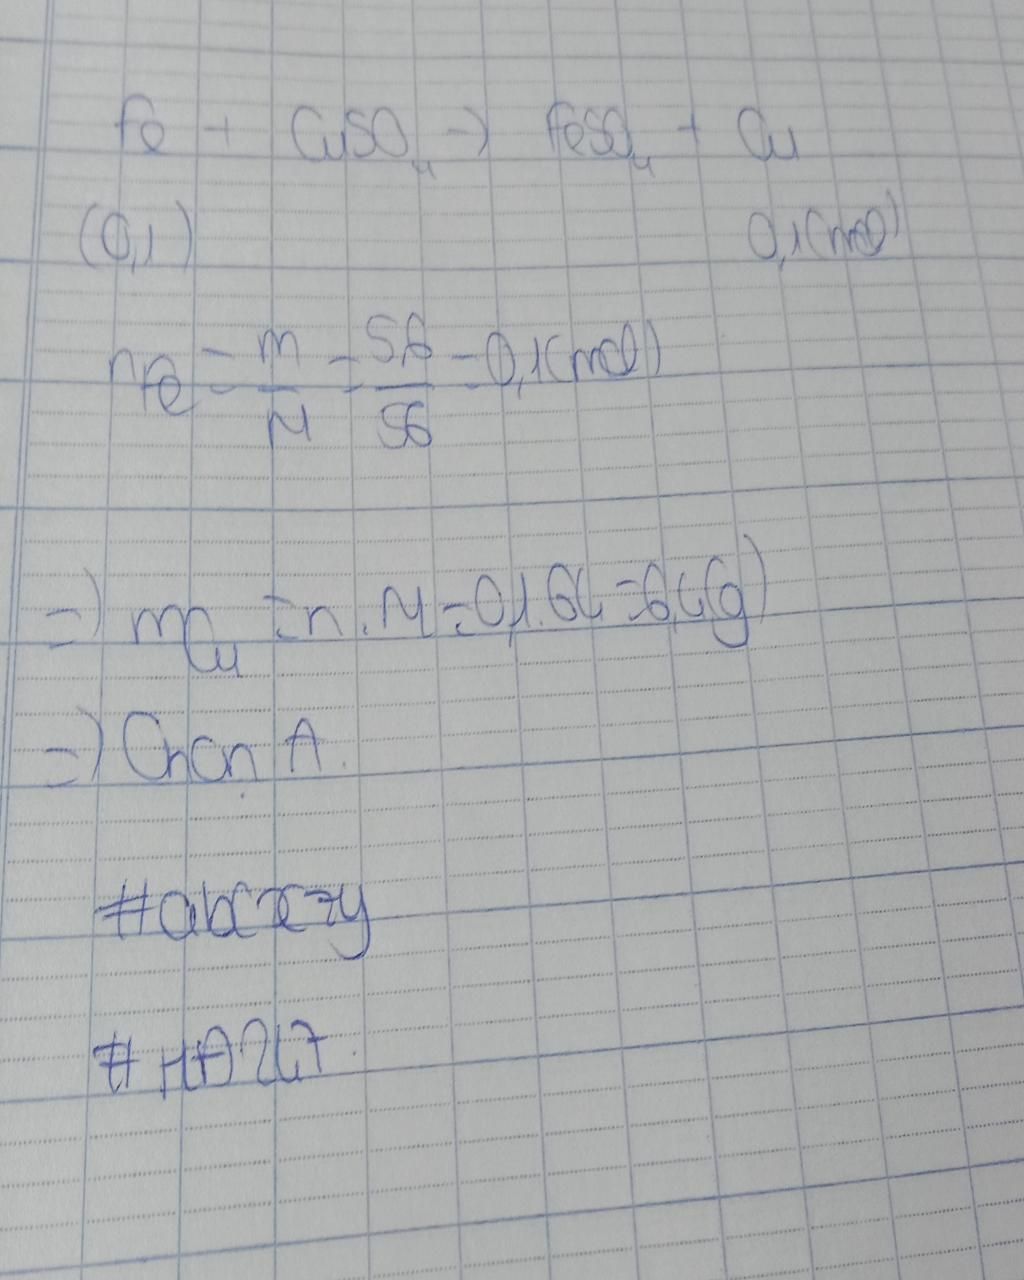 Fe + CuSO₄ => FeSO₄ + Cu
(0,1) 0,1(mol)
nFe = m/M = 5,6/56 = 0,1(mol)
=) mCu = n.M = 0,1.64 = 6,4(g)
=) Chọn A.
#abcxzy
#HA247.